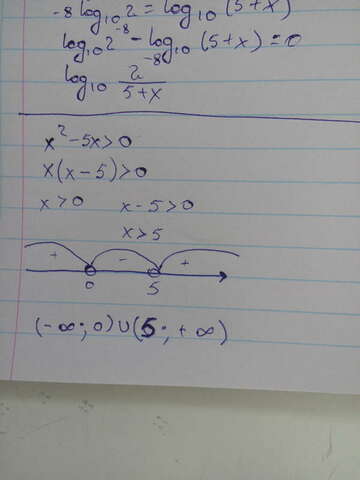 -8 log₁₀ 2 = log₁₀ (5+x)
log₁₀ 2⁻⁸ - log₁₀ (5+x) = 0
log₁₀ 2⁻⁸/5+x
x² - 5x > 0
x(x - 5) > 0
x > 0 x - 5 > 0
x > 5
+ - +
0 5
(-∞; 0) ∪ (5; +∞)